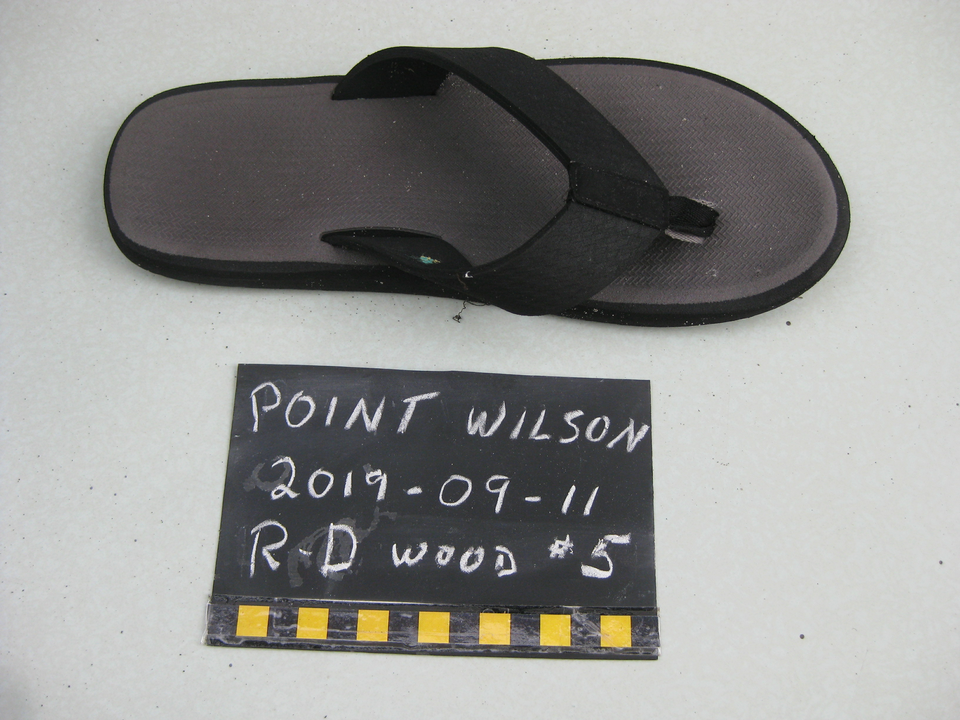 POINT WILSON
2019-09-11
R-D WOOD #5